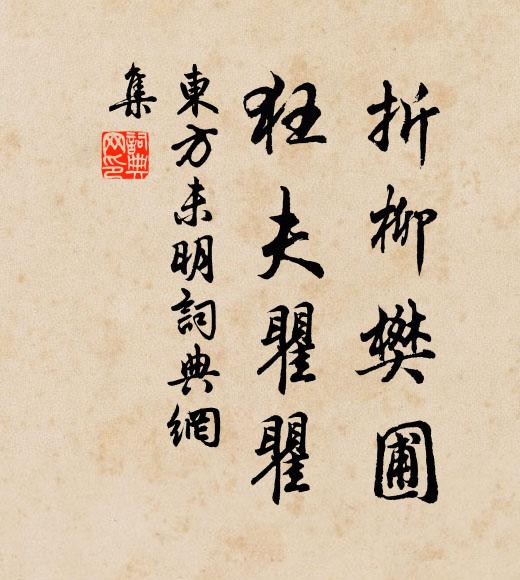 折柳樊圃
狂夫瞿瞿
東方未明詞典網
集
詞典
网印